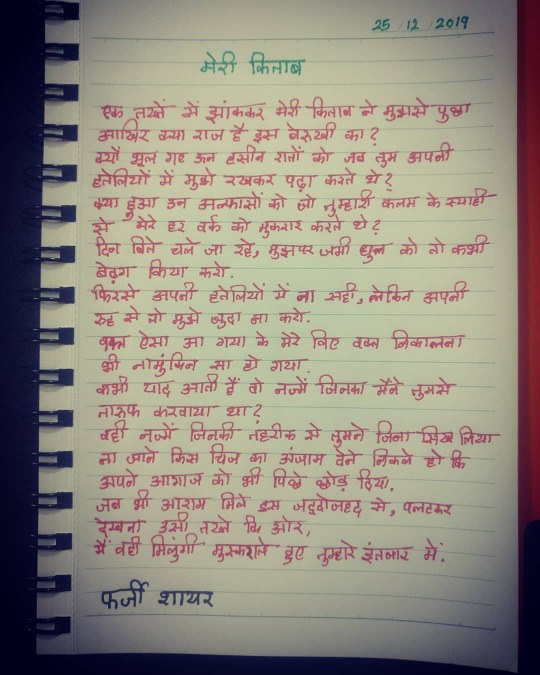 25/12/2019
मेरी किताब
एक तख्तें में झांककर मेरी किताब ने मुझसे पुछा
आखिर क्या राज है इस बेरुखी का?
क्यों भूल गए उन हसीन रातों को जब तुम अपनी
हतेलियों में मुझे रखकर पढ़ा करते थे?
क्या हुआ उन अल्फासों को जो तुम्हारी कलम के स्याही
से मेरे हर वर्क को मुकरार करते थे?
दिन बिते चले जा रहे, मुझपर जमी धुल को तो कभी
बेढ़ग किया करो.
फिरसे अपनी हतेलियों में ना सही, लेकिन अपनी
रुह से तो मुझे जुदा ना करो.
वक्त ऐसा आ गया के मेरे लिए वक्त निकालना
भी नामुंकिन सा हो गया.
कभी याद आती हैं वो नज्में जिनका मैंने तुमसे
तारुफ करवाया था?
वही नज्में जिनकी तहरीक से तुमने जिना सिख लिया
ना जाने किस चिज का अंजाम देने निकले हो कि
अपने आगाज को भी पिछे छोड़ दिया.
जब भी आराम मिले इस जद्दोजहद से, पलटकर
देखना उसी तख्ते कि ओर,
मैं वही मिलुंगी मुस्कराते हुए तुम्हारे इंतजार में.
फर्जी शायर